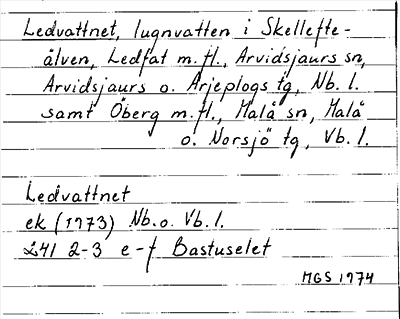 Ledvattnet, lugnvatten i Skellefte-
älven, Ledfat m.fl., Arvidsjaurs sn,
Arvidsjaurs o. Arjeplogs tg, Nb. l.
samt Öberg m.fl., Malå sn, Malå
o. Norsjö tg, Vb. l.
Ledvattnet
ek (1973) Nb. o. Vb. l.
24I 2-3 e-f Bastuselet
MGS 1974